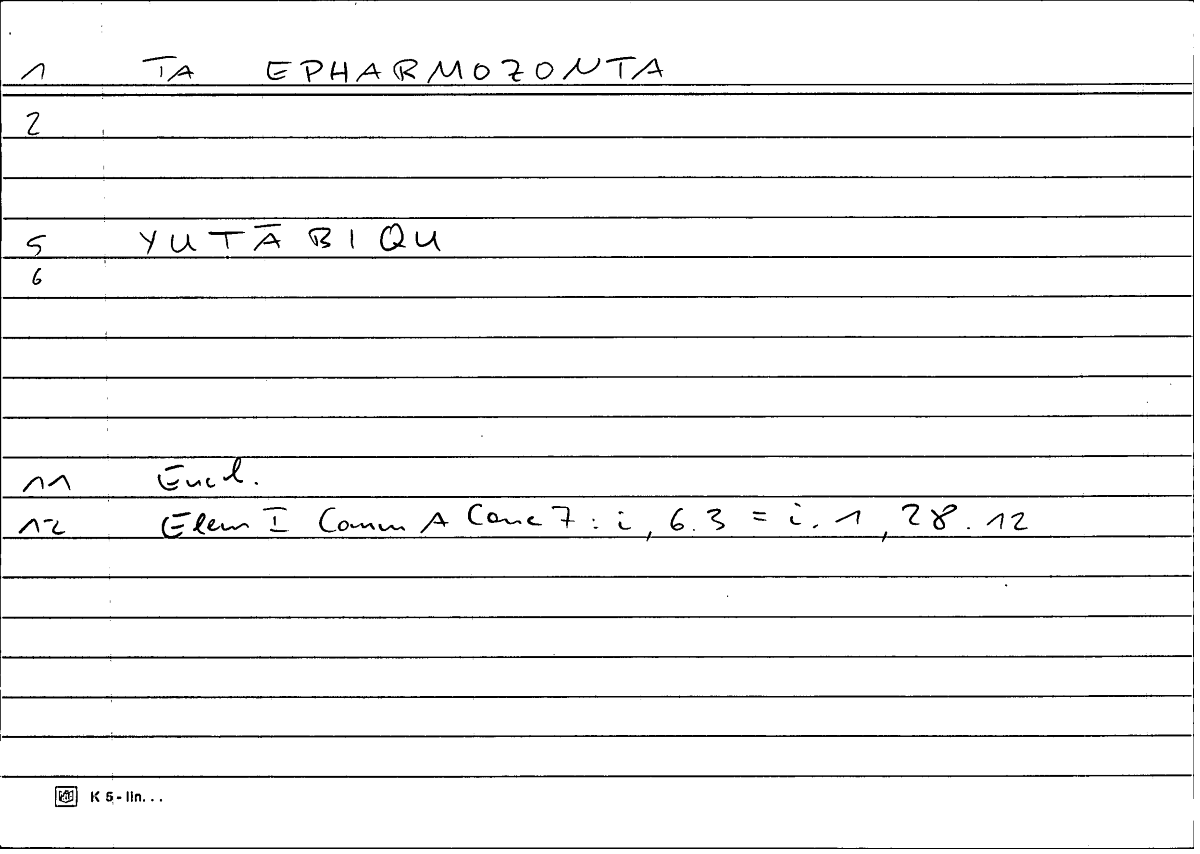 1 TA EPHARMOZONTA
2
5 YUTĀBIQU
6
11 Eucl.
12 Elem I Comm A Conc 7 : i, 6.3 = i. 1, 28.12
K 5 - lin. . .